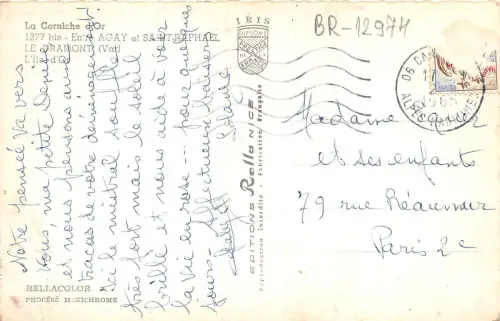 La Corniche d'Or
1277 bis - Entre AGAY et SAINT-RAPHAEL
LE DRAMONT (Var)
L'Ile d'Or
Notre pensée va vers
vous, ma petite Denise
et nous pensons aux
tracas de votre déménagement
Ici le mistral souffle
très fort mais le soleil
brille et nous aide à voir
la vie en rose -- pour quelques
jours. Affectueux baisers
RELLACOLOR
PROCÉDÉ MEXICHROME
IRIS
EDITIONS Rella NICE
Reproduction Interdite - Fabrication Française
BR-12974
06 CAN
17
1965
ALPES MARITIMES
Madame
et ses enfants
79 rue Réaumur
Paris 2e